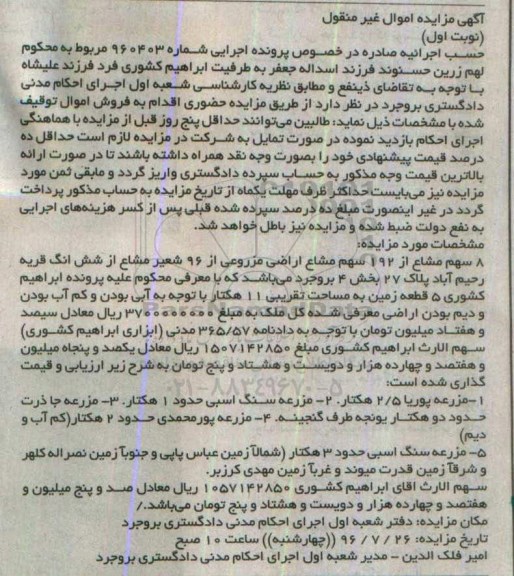 آگهی مزایده اموال غیر منقول
(نوبت اول)
حسب اجرائیه صادره در خصوص پرونده اجرایی شماره ۹۶۰۴۰۳ مربوط به محکوم
لهم زرین حسنوند فرزند اسداله جعفر به طرفیت ابراهیم کشوری فرد فرزند علیشاه
با توجه به تقاضای ذینفع و مطابق نظریه کارشناسی شعبه اول اجرای احکام مدنی
دادگستری بروجرد در نظر دارد از طریق مزایده حضوری اقدام به فروش اموال توقیف
شده با مشخصات ذیل نماید: طالبین می‌توانند حداقل پنج روز قبل از مزایده با هماهنگی
اجرای احکام بازدید نموده در صورت تمایل به شرکت در مزایده لازم است حداقل ده
درصد قیمت پیشنهادی خود را بصورت وجه نقد همراه داشته باشند تا در صورت ارائه
بالاترین قیمت وجه مذکور به حساب سپرده دادگستری واریز گردد و مابقی ثمن مورد
مزایده نیز می‌بایست حداکثر ظرف مهلت یکماه از تاریخ مزایده به حساب مذکور پرداخت
گردد در غیر اینصورت مبلغ ده درصد سپرده شده قبلی پس از کسر هزینه‌های اجرایی
به نفع دولت ضبط شده و مزایده نیز باطل خواهد شد.
مشخصات مورد مزایده:
۸ سهم مشاع از ۱۹۲ سهم مشاع اراضی مزروعی از ۹۶ شعیر مشاع از شش انگ قریه
رحیم آباد پلاک ۲۷ بخش ۴ بروجرد می‌باشد که با معرفی محکوم علیه پرونده ابراهیم
کشوری ۵ قطعه زمین به مساحت تقریبی ۱۱ هکتار با توجه به آبی بودن و کم آب بودن
و دیم بودن اراضی معرفی شده کل ملک به مبلغ ۳۷۰۰۰۰۰۰۰۰ ریال معادل سیصد
و هفتاد میلیون تومان با توجه به دادنامه ۳۶۵/۵۷ مدنی (ابزاری ابراهیم کشوری)
سهم الارث ابراهیم کشوری مبلغ ۱۵۰۷۱۴۲۸۵۰ ریال معادل یکصد و پنجاه میلیون
و هفتصد و چهارده هزار و دویست و هشتاد و پنج تومان به شرح زیر ارزیابی و قیمت
گذاری شده است:
۱-مزرعه پوریا ۲/۵ هکتار. ۲- مزرعه سنگ اسبی حدود ۱ هکتار. ۳- مزرعه جا ذرت
حدود دو هکتار یونجه طرف گنجینه. ۴- مزرعه پورمحمدی حدود ۲ هکتار(کم آب و
دیم)
۵- مزرعه سنگ اسبی حدود ۳ هکتار (شمالاً زمین عباس پاپی و جنوباً زمین نصراله کلهر
و شرقاً زمین قدرت میوند و غرباً زمین مهدی کرزبر.
سهم الارث آقای ابراهیم کشوری ۱۰۵۷۱۴۲۸۵۰ ریال معادل صد و پنج میلیون و
هفتصد و چهارده هزار و دویست و هشتاد و پنج تومان می‌باشد./
مکان مزایده: دفتر شعبه اول اجرای احکام مدنی دادگستری بروجرد
تاریخ مزایده: ۲۶ / ۷ / ۹۶ ((چهارشنبه)) ساعت ۱۰ صبح
امیر فلک الدین - مدیر شعبه اول اجرای احکام مدنی دادگستری بروجرد
۰۲۱-۸۸۳۴۹۶۷۰-۵